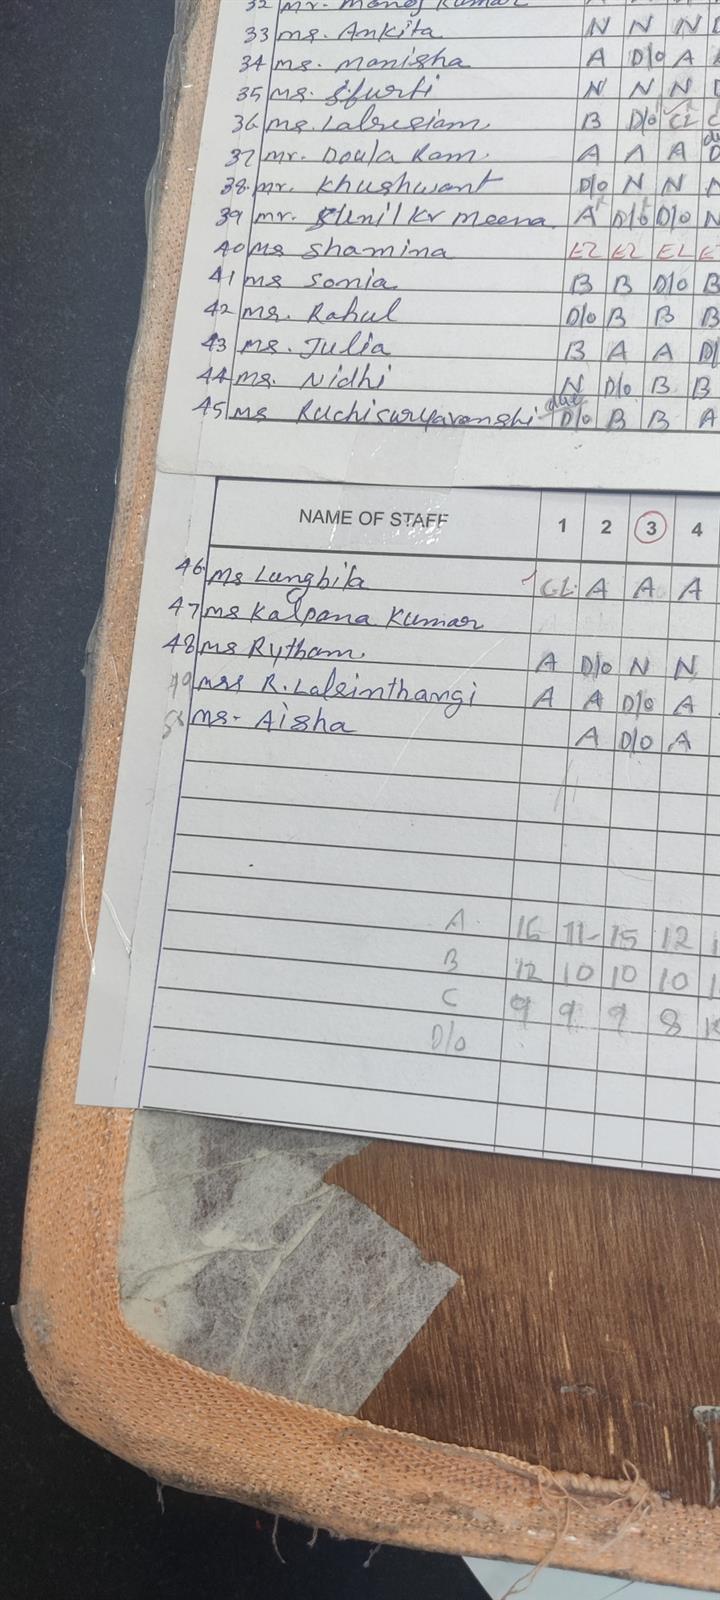 32 Mr. Manoj Kumar
33 Ms. Ankita N N N
34 Ms. Manisha A D/o A
35 Ms. Sfurti N N N
36 Ms. Lalresiam B D/o CL
37 Mr. Doula Ram A A A
38. Mr. Khushwant D/o N N
39 Mr. Sunil Kr Meena A D/o D/o N
40 Ms Shamina EL EL EL
41 Ms Sonia B B D/o B
42 Mr. Rahul D/o B B B
43 Ms. Julia B A A
44 Ms. Nidhi N D/o B B
45 Ms Ruchisuryavanshi due D/o B B A
NAME OF STAFF 1 2 3 4
46. Ms Lungbila CL A A A
47 Ms Kalpana Kumar
48 Ms Rytham A D/o N N
49 Mrs R. Lalsinthangi A A D/o A
50 Ms. Aisha A D/o A
A 16 11 15 12
B 12 10 10 10
C 9 9 9 8
D/o